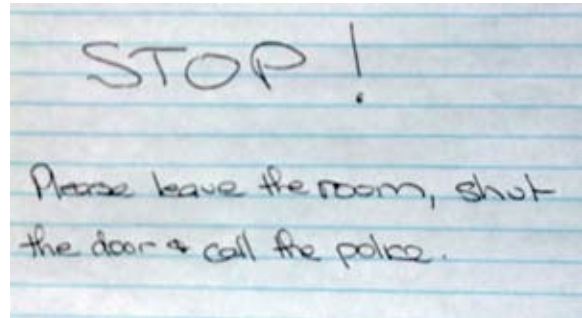 STOP!
Please leave the room, shut
the door & call the police.